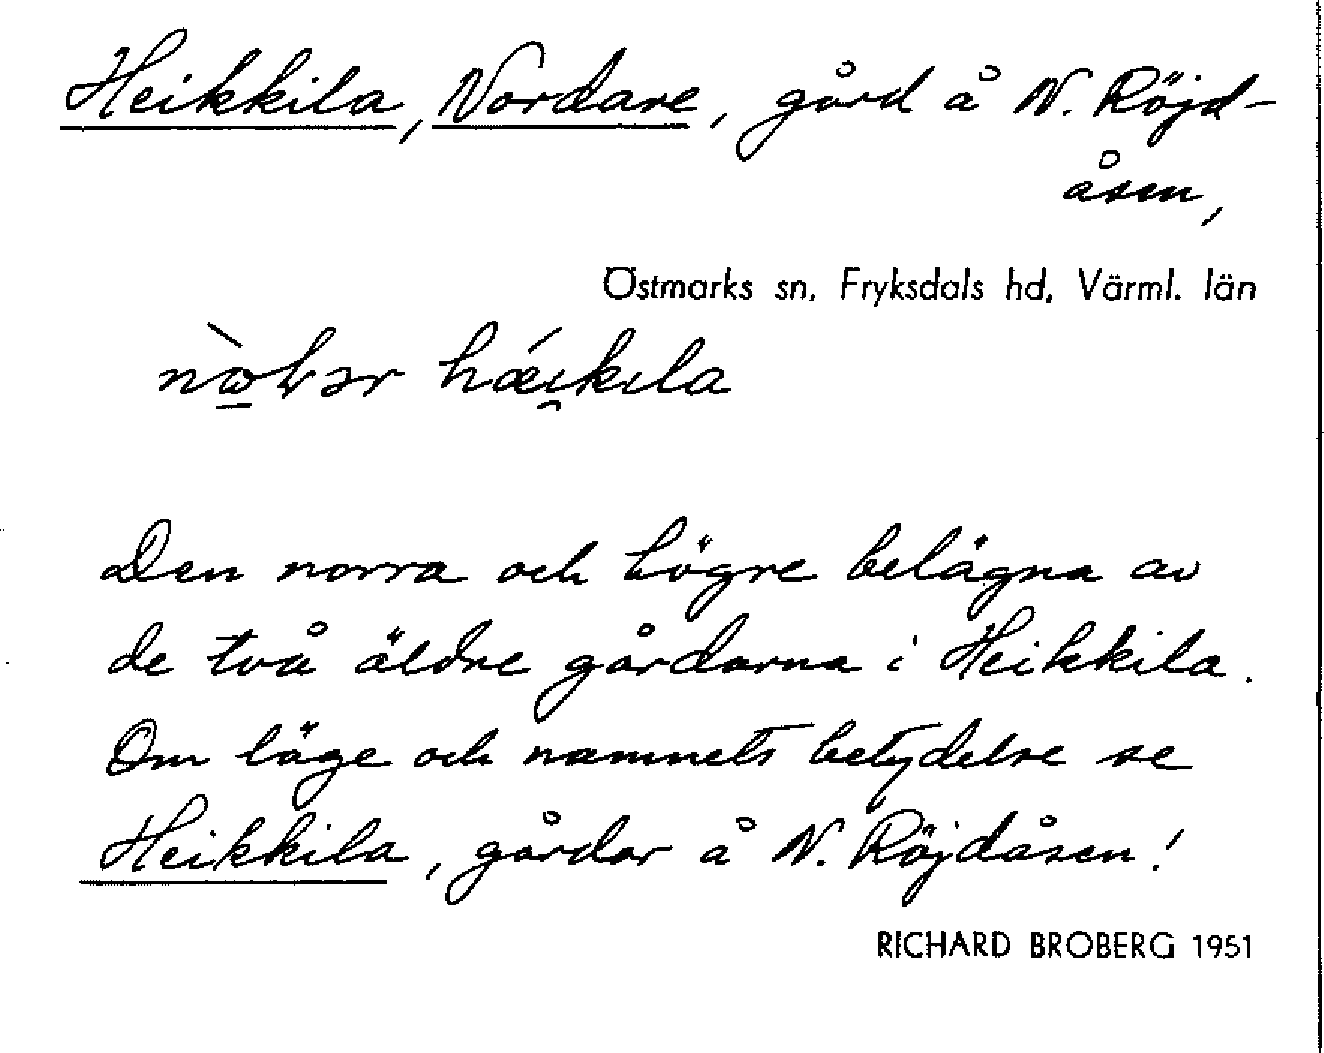 Heikkila, Nordare, gård å N. Röjd-
åsen,
Östmarks sn, Fryksdals hd, Värml. län
Den norra och högre belägna av
de två äldre gårdarna i Heikkila.
Om läge och namnets betydelse se
Heikkila, gårdar å N. Röjdåsen!
RICHARD BROBERG 1951